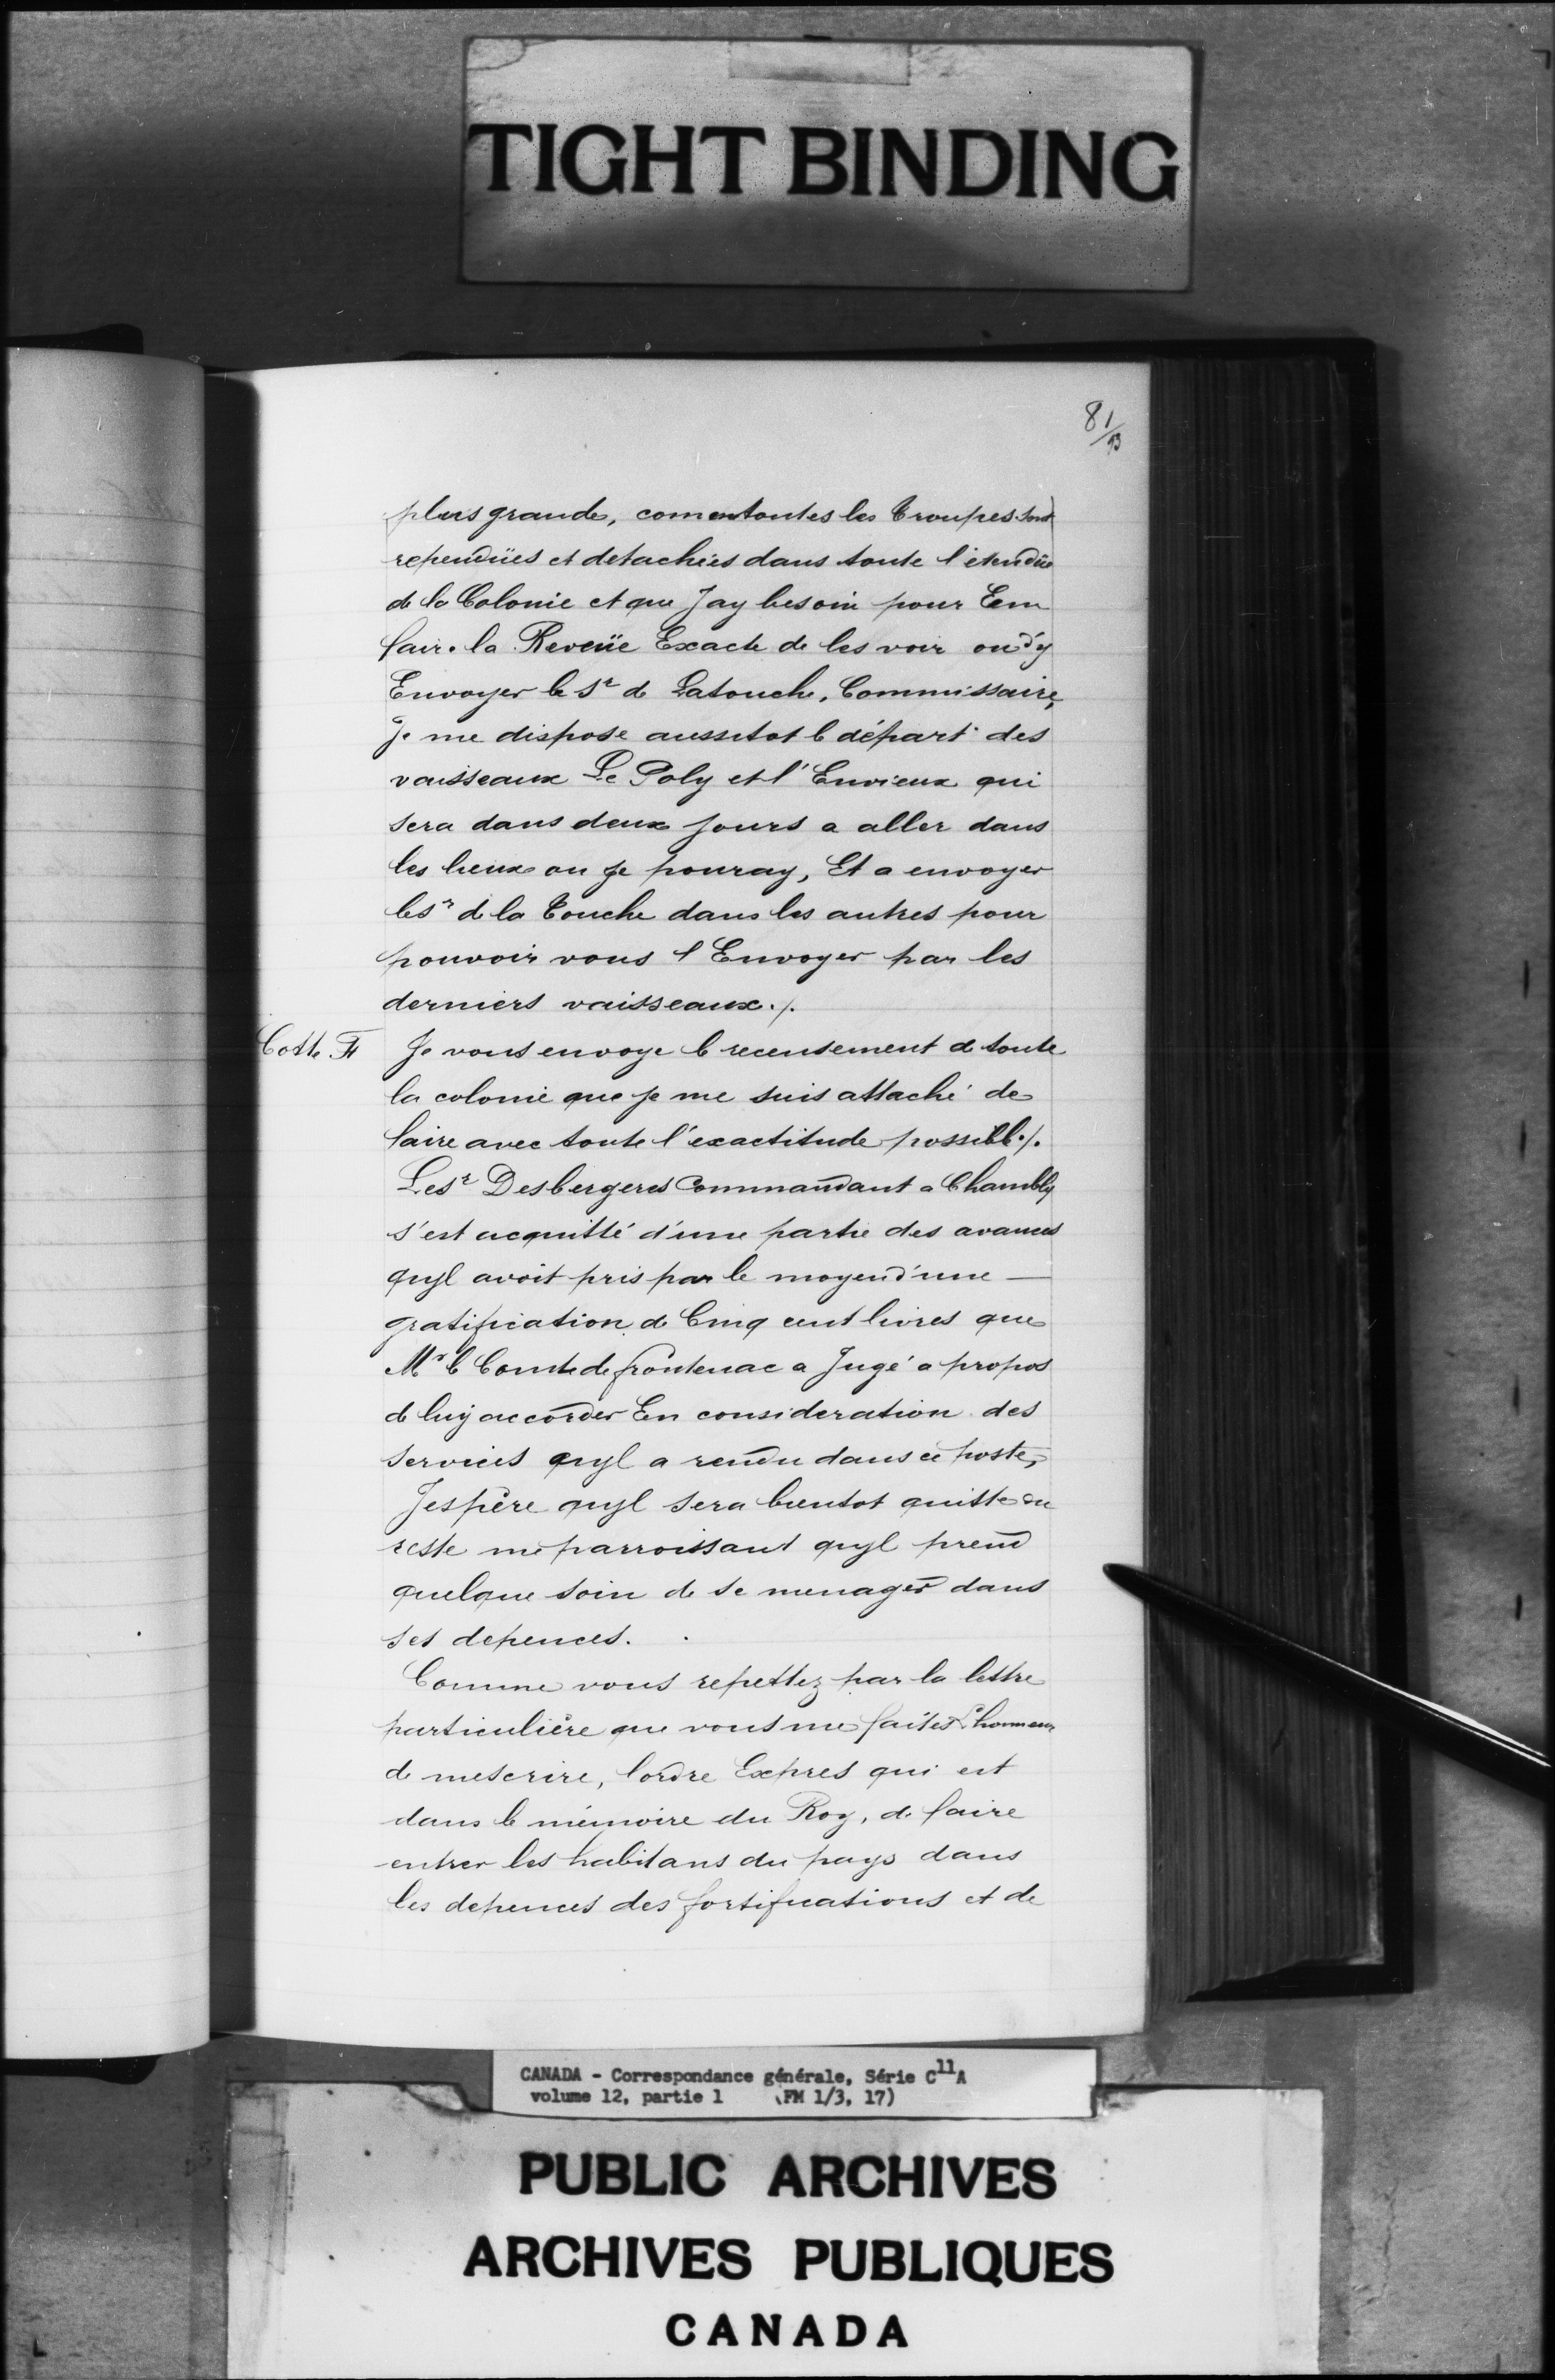 TIGHT BINDING
81/93
plus grande, comentoutes les troupes sont
rependües et detachées dans toute l'étendüe
de la Colonie et que Jay besoin pour Em
faire la Reveüe Exacte de les voir ou d'y
Envoyer le Sr de Latouche, Commissaire,
Je me dispose aussitot le départ des
vaisseaux Le Poly et l'Envieux qui
sera dans deux jours a aller dans
les lieux ou je pouray, Et a envoyer
le sr de la Touche dans les autres pour
pouvoir vous l'Envoyer par les
derniers vaisseaux ./.
Cotte F Je vous envoye le recensement de toute
la colonie que je me suis attaché de
faire avec toute l'exactitude possible ./.
Le sr Desbergeres Commandant a Chambly
s'est acquitté d'une partie des avances
quyl avoit pris par le moyen d'une —
gratification de Cinq cent livres que
Mr le Comte de frontenac a Jugé a propos
de luy accorder En consideration des
services quyl a rendu dans ce poste,
Jespère quyl sera bientot quitte du
reste me parroissant quyl prend
quelque soin de se menager dans
ses depences.
Comme vous repettez par la lettre
particulière que vous me faites l'honneur
de mescrire, lordre Expres qui est
dans le mémoire du Roy, de faire
entrer les habitans du pays dans
les depences des fortifications et de
CANADA - Correspondance générale, Série C11A
volume 12, partie 1 (FM 1/3, 17)
PUBLIC ARCHIVES
ARCHIVES PUBLIQUES
CANADA